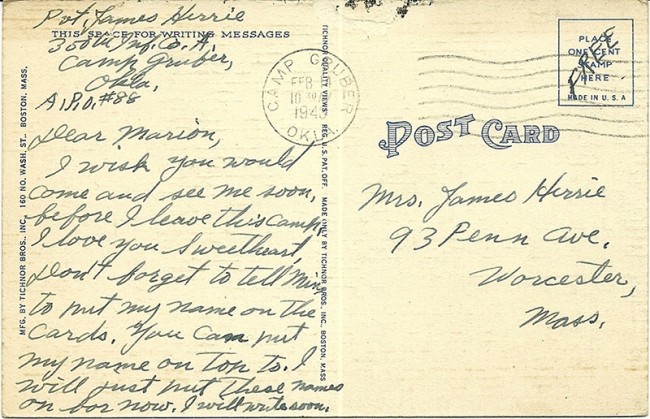 Pvt. James Herrie
THIS SPACE FOR WRITING MESSAGES
350th Inf. Co. A.
Camp Gruber,
Okla.
A.P.O. #88
Dear Marion,
I wish you would
come and see me soon,
before I leave this camp.
I love you Sweetheart,
Don't forget to tell
to put my name on the
cards. You can put
my name on top to. I
will just put these names
on for now. I will write soon.
MFG. BY TICHNOR BROS., INC., 160 NO. WASH. ST., BOSTON, MASS.
TICHNOR QUALITY VIEWS REG. U. S. PAT. OFF. MADE ONLY BY TICHNOR BROS., INC., BOSTON, MASS.
CAMP GRUBER
FEB
10
OKLA.
PLACE
ONE CENT
STAMP
HERE
MADE IN U. S. A
FREE
POST CARD
Mrs. James Herrie
93 Penn Ave.
Worcester,
Mass.